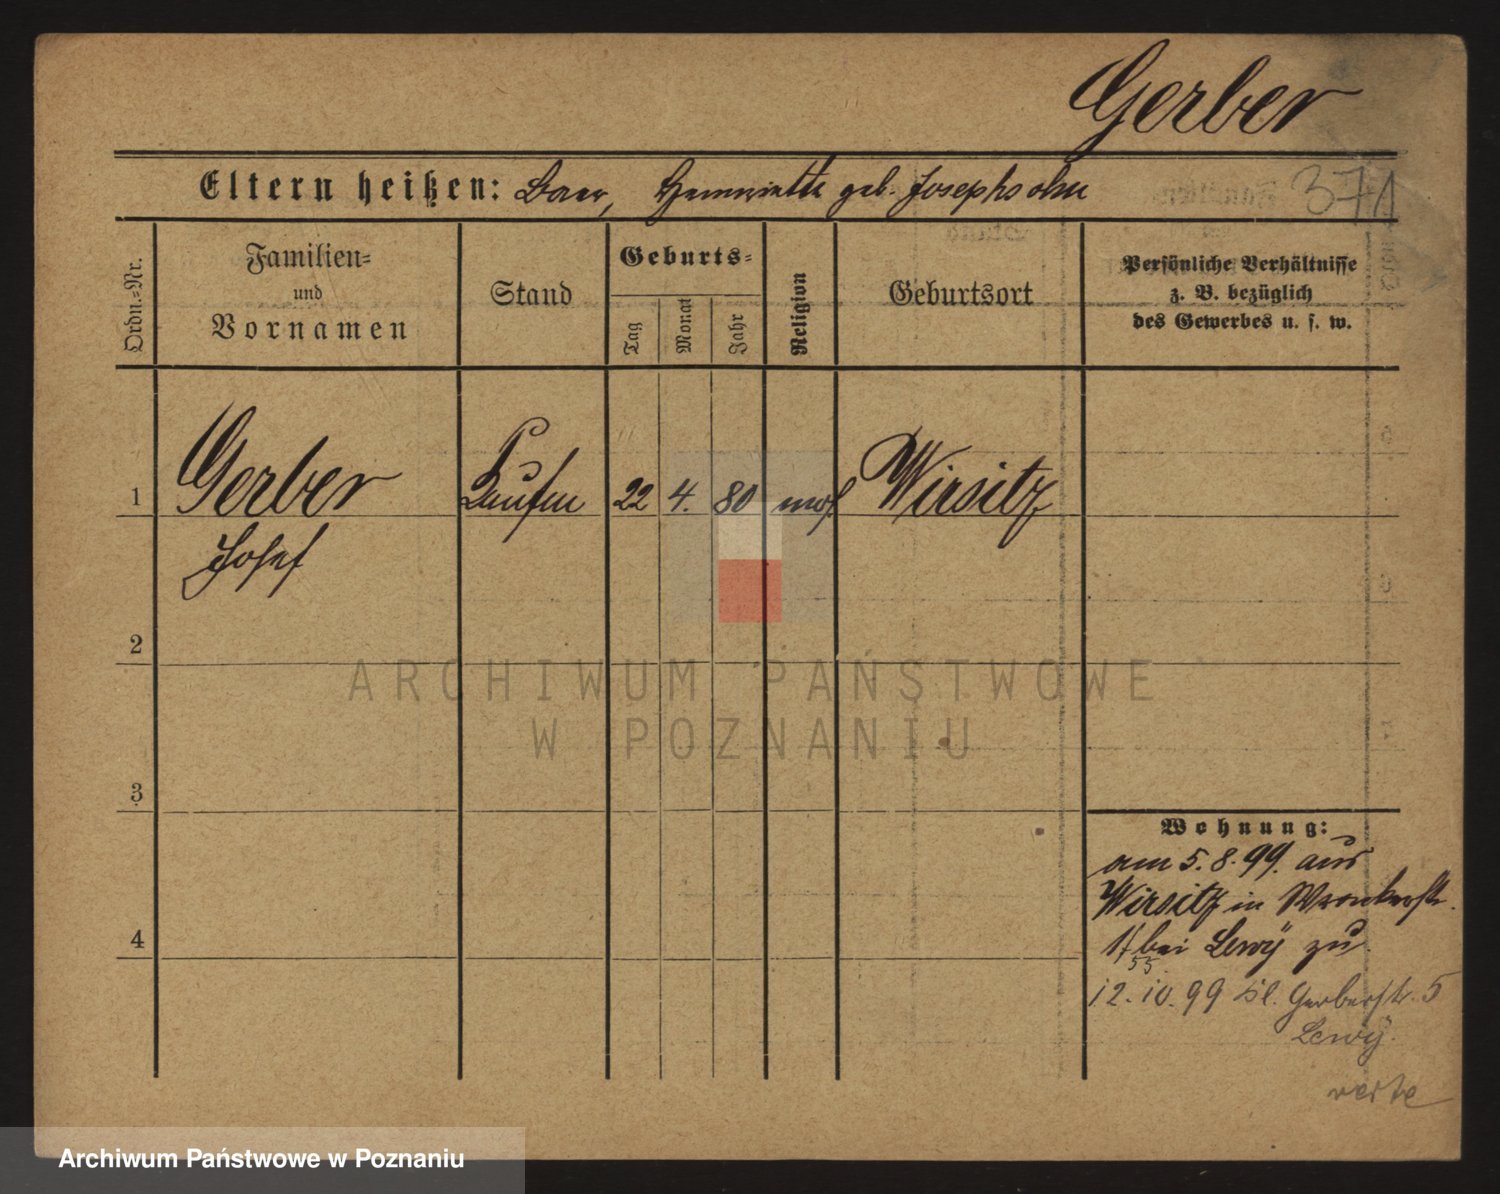 Gerber
Eltern heißen: Baer, Henriette geb. Josephsohn
371
Ordn.-Nr.
Familien-
und
Vornamen
Stand
Geburts-
Tag
Monat
Jahr
Religion
Geburtsort
Persönliche Verhältnisse
z. B. bezüglich
des Gewerbes u. s. w.
1
Gerber
22
4.
80
mos.
Wirsitz
Josef
2
3
4
Wohnung:
am 5.8.99. aus
Wirsitz in Wronkerstr.
bei Lewÿ zu
12.10.99 kl. Gerberstr. 5
Lewÿ.
verte
ARCHIWUM PAŃSTWOWE
W POZNANIU
Archiwum Państwowe w Poznaniu